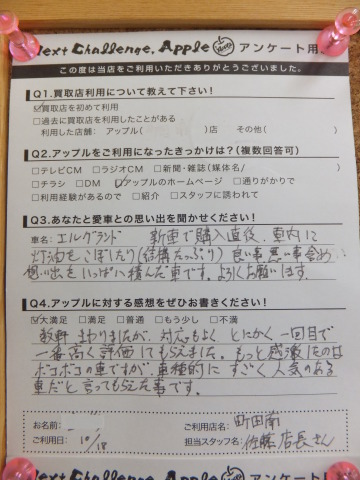 Next Challenge. Apple アンケート用
この度は当店をご利用いただきありがとうございました。
Q1.買取店利用について教えて下さい！
☑買取店を初めて利用
□過去に買取店を利用したことがある
利用した店舗: アップル( )店 その他( )
Q2.アップルをご利用になったきっかけは？(複数回答可)
□テレビCM □ラジオCM □新聞・雑誌(媒体名/ )
□チラシ □DM ☑アップルのホームページ □通りがかりで
□利用経験があるので □紹介 □スタッフに誘われて
Q3.あなたと愛車との思い出を聞かせください！
車名: エルグランド 新車で購入直後、車内に
灯油をこぼしたり(結構たっぷり) 良い事悪い事含め
思い出をいっぱい積んだ車です。よろしくお願います。
Q4.アップルに対する感想をぜひお書きください！
☑大満足 □満足 □普通 □もう少し □不満
数軒まわりましたが、対応もよく とにかく 一回目で
一番高く評価してもらえました。もっと感激したのは
ボコボコの車ですが、車種的に すごく人気のある
車だと言ってもらえた事です。
お名前:
ご利用日: 10/18
ご利用店名: 町田南
担当スタッフ名: 佐藤店長さん
Next Challenge. Apple アンケート